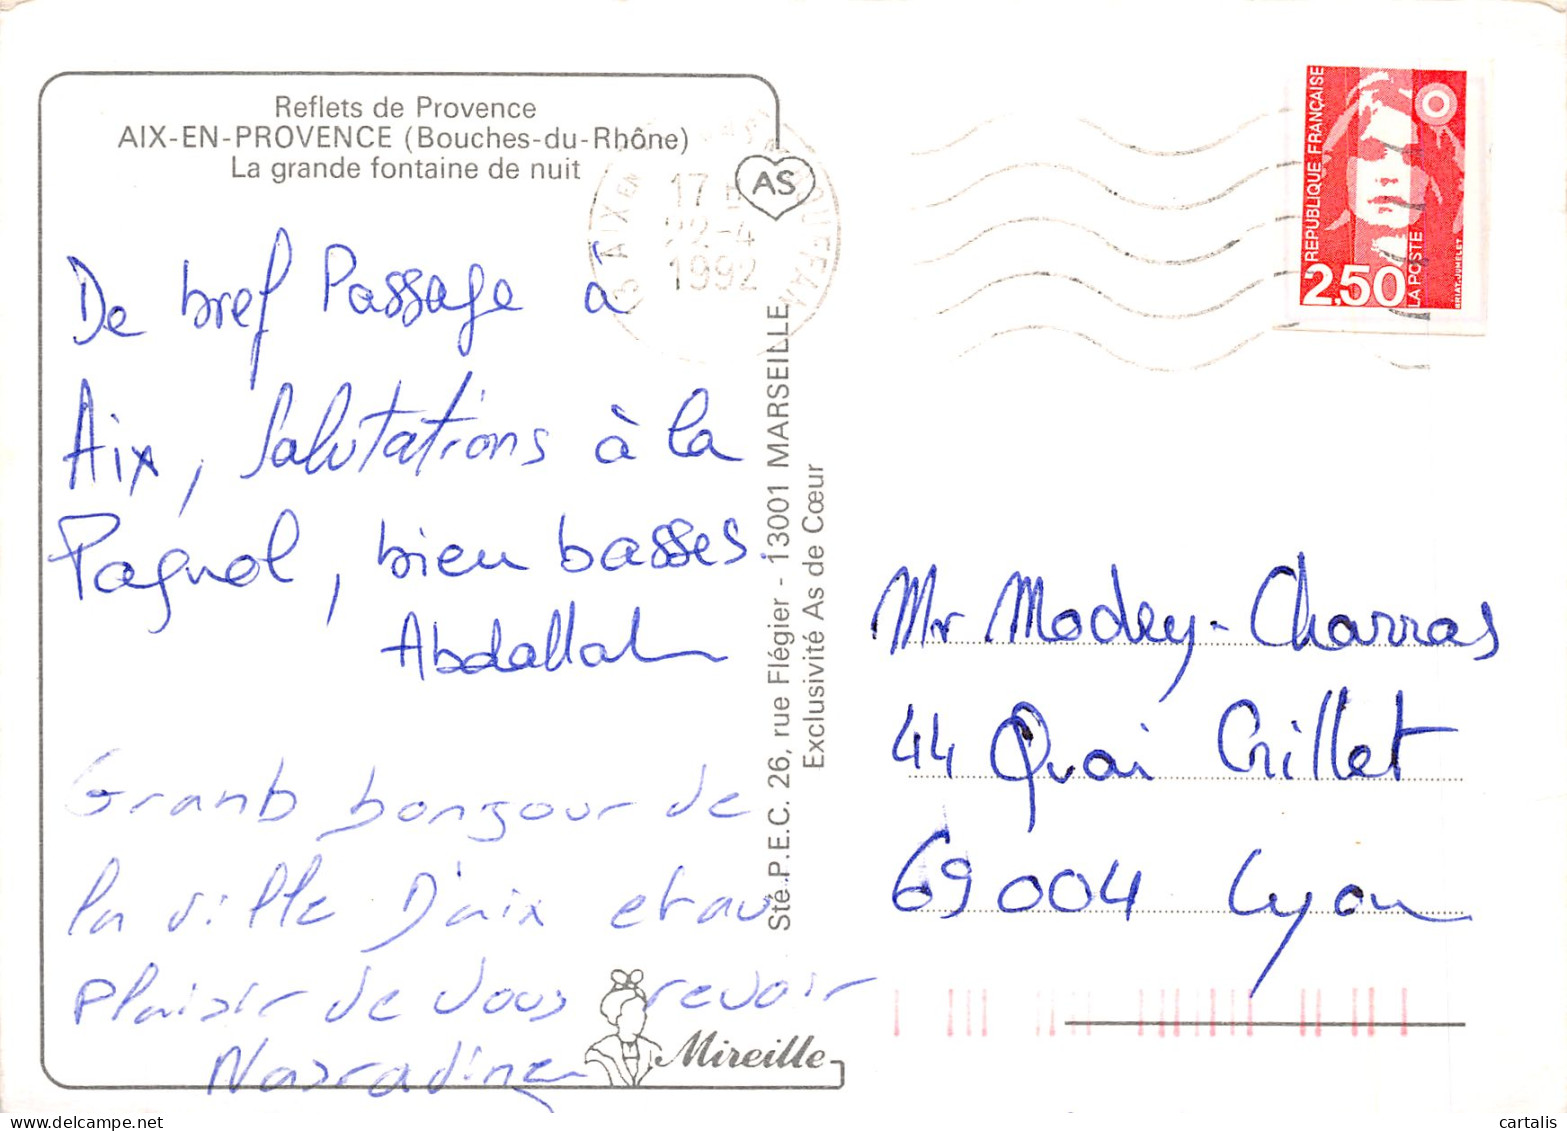 Reflets de Provence
AIX-EN-PROVENCE (Bouches-du-Rhône)
La grande fontaine de nuit
AS
17 H
22-4
1992
De bref Passage à
Aix, Salutations à la
Pagnol, bien basses.
Abdallah
Granb bonjour de
la ville D'aix et au
plaisir de vous revoir
Nasradine
Mireille
Sté P.E.C. 26, rue Flégier - 13001 MARSEILLE
Exclusivité As de Cœur
REPUBLIQUE FRANÇAISE
2,50
LA POSTE
BRIAT-JUMELET
Mr Modey-Charras
44 Quai Gillet
69004 Lyon
cartalis